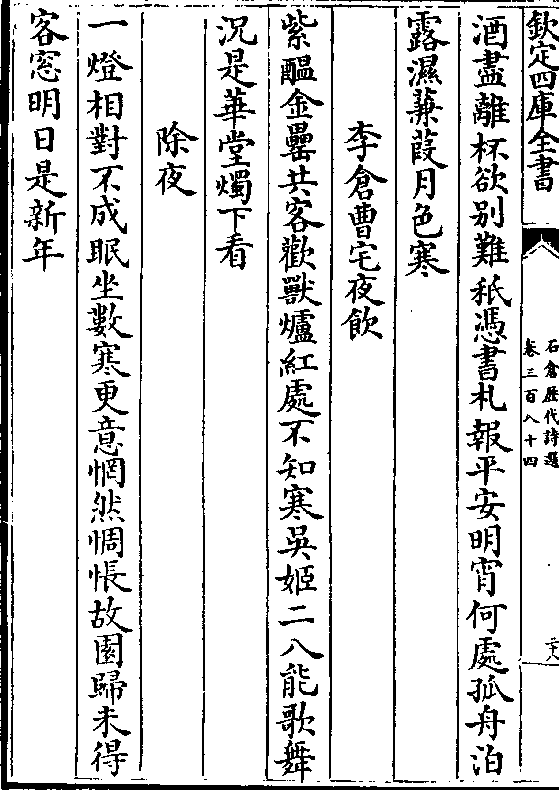 欽定四庫全書
石倉歷代詩選
卷三百八十四
二十八
酒盡離杯欲别難秪憑書札報平安明宵何處孤舟泊
露濕蒹葭月色寒
李倉曹宅夜飲
紫醖金罍共客歡獸爐紅處不知寒吳姬二八能歌舞
況是華堂燭下看
除夜
一燈相對不成眠坐數寒更意惘然惆悵故園歸未得
客窓明日是新年